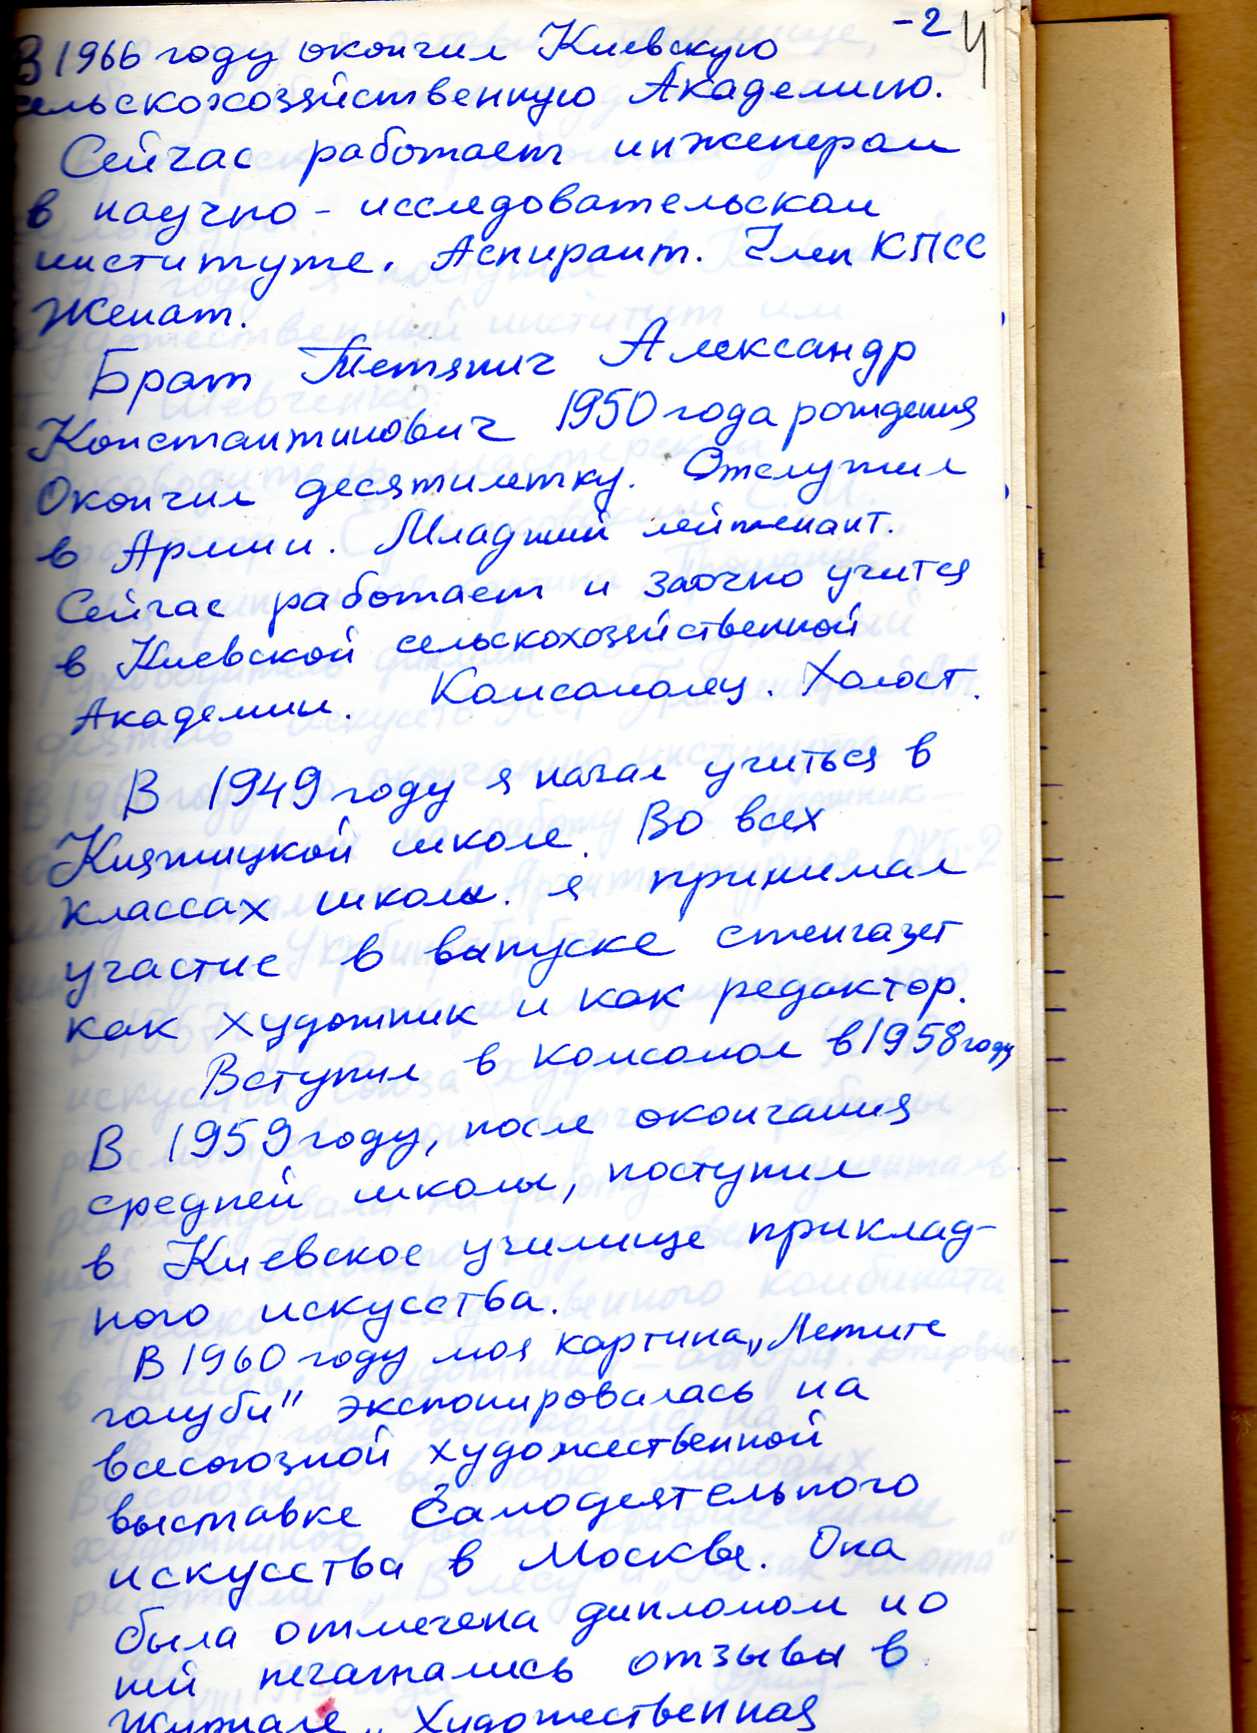 -2
4
В 1966 году окончил Киевскую
сельскохозяйственную Академию.
Сейчас работает инженером
в научно-исследовательском
институте. Аспирант. Член КПСС
Женат.
Брат Тетянич Александр
Константинович 1950 года рождения
Окончил десятилетку. Отслужил
в Армии. Младший лейтенант.
Сейчас работает и заочно учится
в Киевской сельскохозяйственной
Академии. Комсомолец. Холост.
В 1949 году я начал учиться в
Княжицкой школе. Во всех
классах школы. я принимал
участие в выпуске стенгазет
как художник и как редактор.
Вступил в комсомол в 1958 году
В 1959 году, после окончания
средней школы, поступил
в Киевское училище приклад-
ного искусства.
В 1960 году моя картина „Летите
голуби" экспонировалась на
всесоюзной художественной
выставке Самодеятельного
искусства в Москве. Она
была отмечена дипломом и о
ней печатались отзывы в
журнале „Художественная